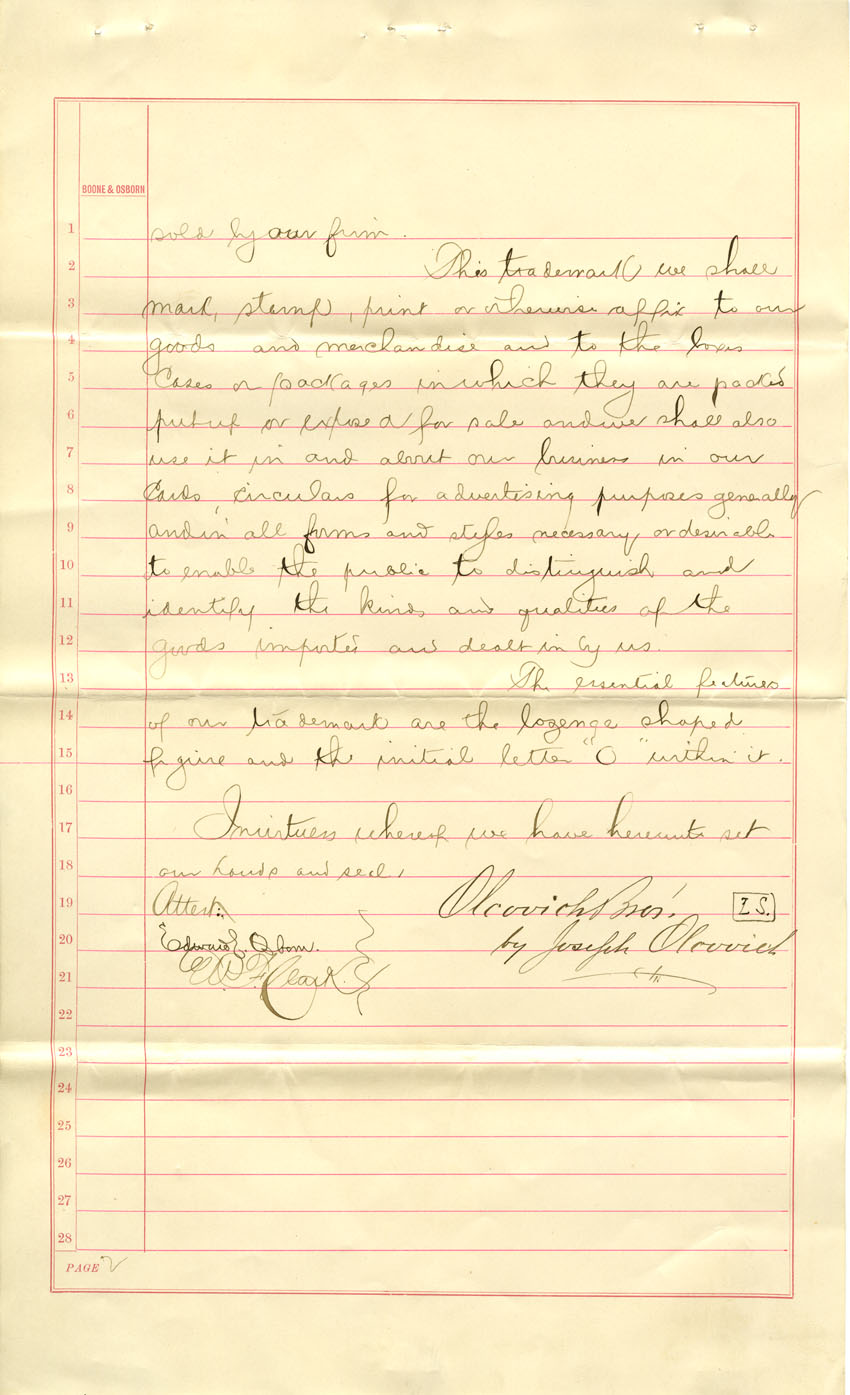 BOONE & OSBORN
1 sold by our firm.
2 This trademark we shall
3 mark, stamp, print or otherwise affix to our
4 goods and merchandise and to the boxes
5 Cases or packages in which they are packed
6 put up or exposed for sale and we shall also
7 use it in and about our business in our
8 Cards, circulars for advertising purposes generally
9 and in all forms and styles necessary or desirable
10 to enable the public to distinguish and
11 identify the kinds and qualities of the
12 goods imported and dealt in by us.
13 The essential features
14 of our trademark are the lozenge shaped
15 figure and the initial letter "O" within it.
16
17 In witness whereof we have hereunto set
18 our hands and seal,
19 Attest: Olcovich Bros. L.S.
20 Edward L. Osborn. by Joseph Olcovich
21 F. Clark.
22
23
24
25
26
27
28
PAGE 2